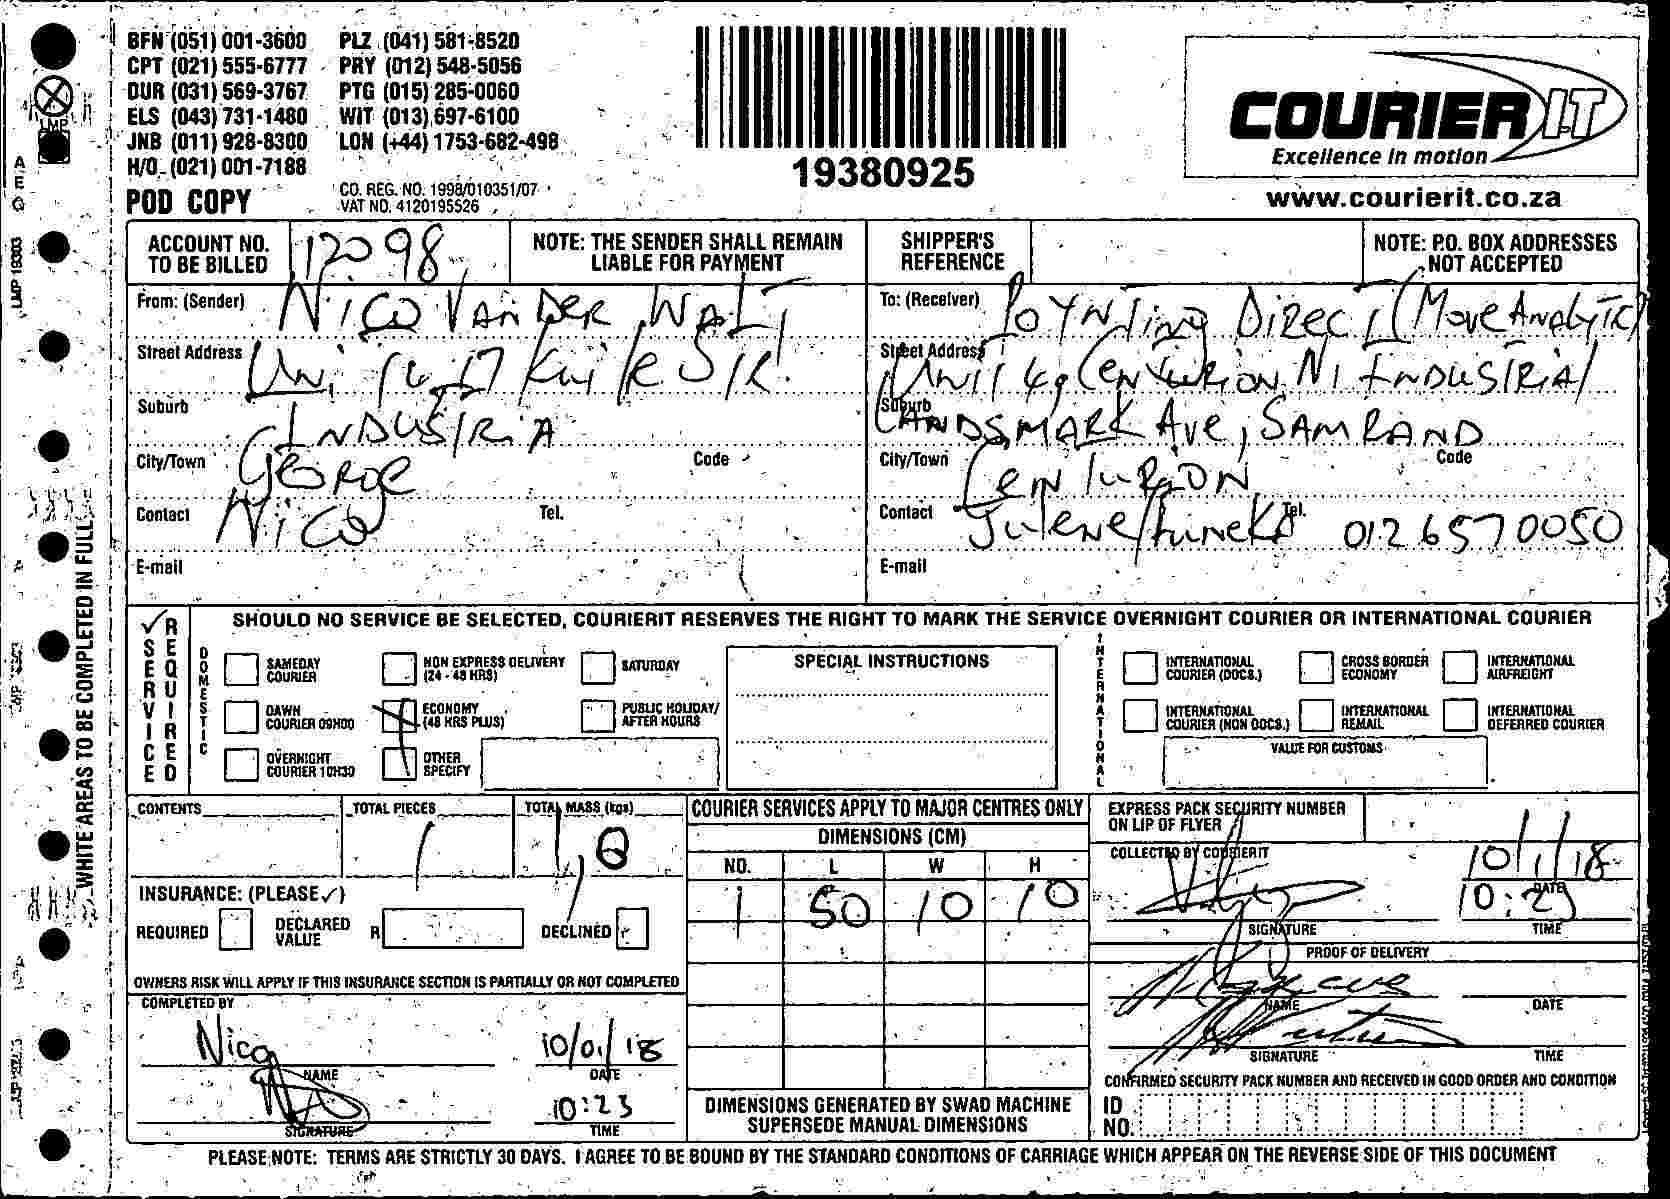 BFN (051) 001-3600 PLZ (041) 581-8520
CPT (021) 555-6777 PRY (012) 548-5056
DUR (031) 569-3767 PTG (015) 285-0060
ELS (043) 731-1480 WIT (013) 697-6100
JNB (011) 928-8300 LON (+44) 1753-682-498
H/O (021) 001-7188
POD COPY
CO. REG. NO. 1998/010351/07
VAT NO. 4120195526
19380925
COURIER IT
Excellence in motion
www.courierit.co.za
ACCOUNT NO. TO BE BILLED 12098
NOTE: THE SENDER SHALL REMAIN LIABLE FOR PAYMENT
SHIPPER'S REFERENCE
NOTE: P.O. BOX ADDRESSES NOT ACCEPTED
From: (Sender) Nico Van Der Walt
Street Address Unit 17 Str.
Suburb Industria
City/Town George Code
Contact Nico Tel.
E-mail
To: (Receiver) Poynting Direct (Move Analytic)
Street Address Unit 49 Centurion N1 Industrial
Suburb Landsmark Ave, Samrand
City/Town Centurion Code
Contact Julene Tel. 012 6570050
E-mail
WHITE AREAS TO BE COMPLETED IN FULL
LMP 19303
SERVICE REQUIRED
SHOULD NO SERVICE BE SELECTED, COURIERIT RESERVES THE RIGHT TO MARK THE SERVICE OVERNIGHT COURIER OR INTERNATIONAL COURIER
DOMESTIC
SAMEDAY COURIER
DAWN COURIER 09H00
OVERNIGHT COURIER 10H30
NON EXPRESS DELIVERY (24 - 48 HRS)
ECONOMY (48 HRS PLUS)
OTHER SPECIFY
SATURDAY
PUBLIC HOLIDAY/ AFTER HOURS
SPECIAL INSTRUCTIONS
INTERNATIONAL
INTERNATIONAL COURIER (DOCS.)
INTERNATIONAL COURIER (NON DOCS.)
CROSS BORDER ECONOMY
INTERNATIONAL REMAIL
INTERNATIONAL AIRFREIGHT
INTERNATIONAL DEFERRED COURIER
VALUE FOR CUSTOMS
CONTENTS
TOTAL PIECES 1
TOTAL MASS (kgs)
INSURANCE: (PLEASE ✓)
REQUIRED DECLARED VALUE R DECLINED
OWNERS RISK WILL APPLY IF THIS INSURANCE SECTION IS PARTIALLY OR NOT COMPLETED
COMPLETED BY
Nico 10/01/18
NAME DATE
10:23
SIGNATURE TIME
COURIER SERVICES APPLY TO MAJOR CENTRES ONLY
DIMENSIONS (CM)
NO. L W H
1 50 10 10
DIMENSIONS GENERATED BY SWAD MACHINE
SUPERSEDE MANUAL DIMENSIONS
EXPRESS PACK SECURITY NUMBER ON LIP OF FLYER
COLLECTED BY COURIERIT
10/1/18
DATE
SIGNATURE TIME
PROOF OF DELIVERY
NAME DATE
SIGNATURE TIME
CONFIRMED SECURITY PACK NUMBER AND RECEIVED IN GOOD ORDER AND CONDITION
ID NO.
PLEASE NOTE: TERMS ARE STRICTLY 30 DAYS. I AGREE TO BE BOUND BY THE STANDARD CONDITIONS OF CARRIAGE WHICH APPEAR ON THE REVERSE SIDE OF THIS DOCUMENT